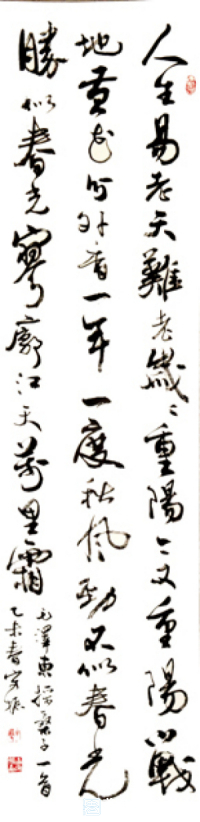 人生易老天難老歲〻重陽今又重陽戰
地黄花分外香一年一度秋風勁不似春光
勝似春光寥廓江天萬里霜
毛澤東採桑子一首
乙未春